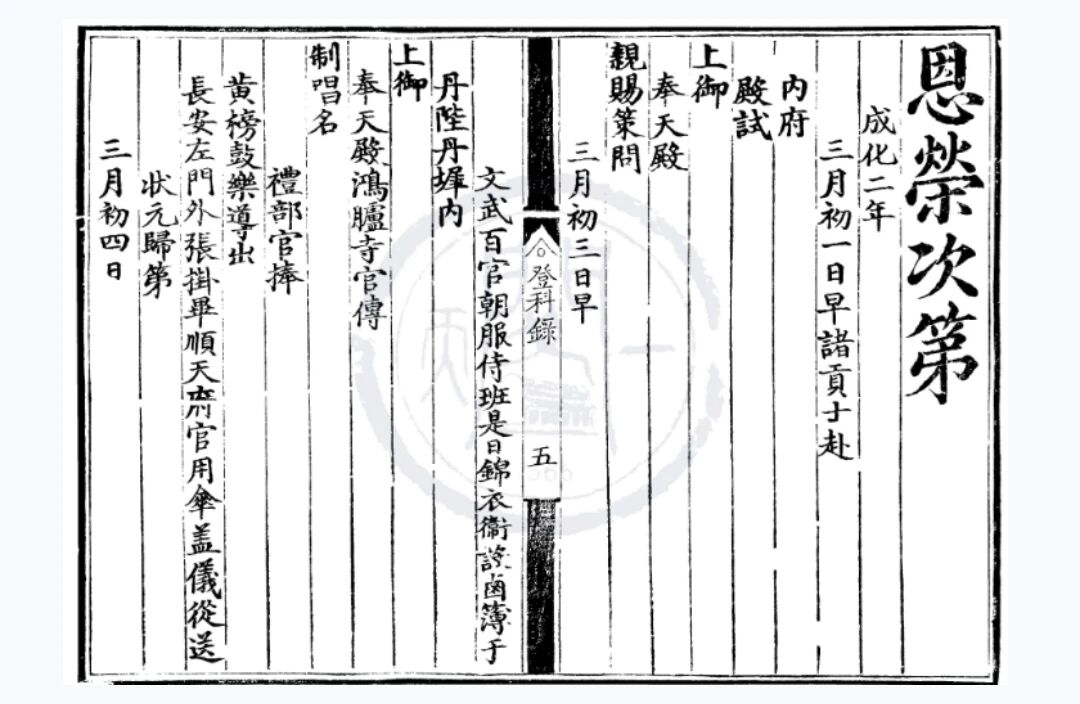 恩榮次第
成化二年
三月初一日早諸貢士赴
內府
殿試
上御
奉天殿
親賜策問
三月初三日早
登科錄
五
文武百官朝服侍班是日錦衣衛設鹵簿于
丹陛丹墀內
上御
奉天殿鴻臚寺官傳
制唱名
禮部官捧
黃榜鼓樂導出
長安左門外張掛畢順天府官用傘盖儀從送
狀元歸第
三月初四日